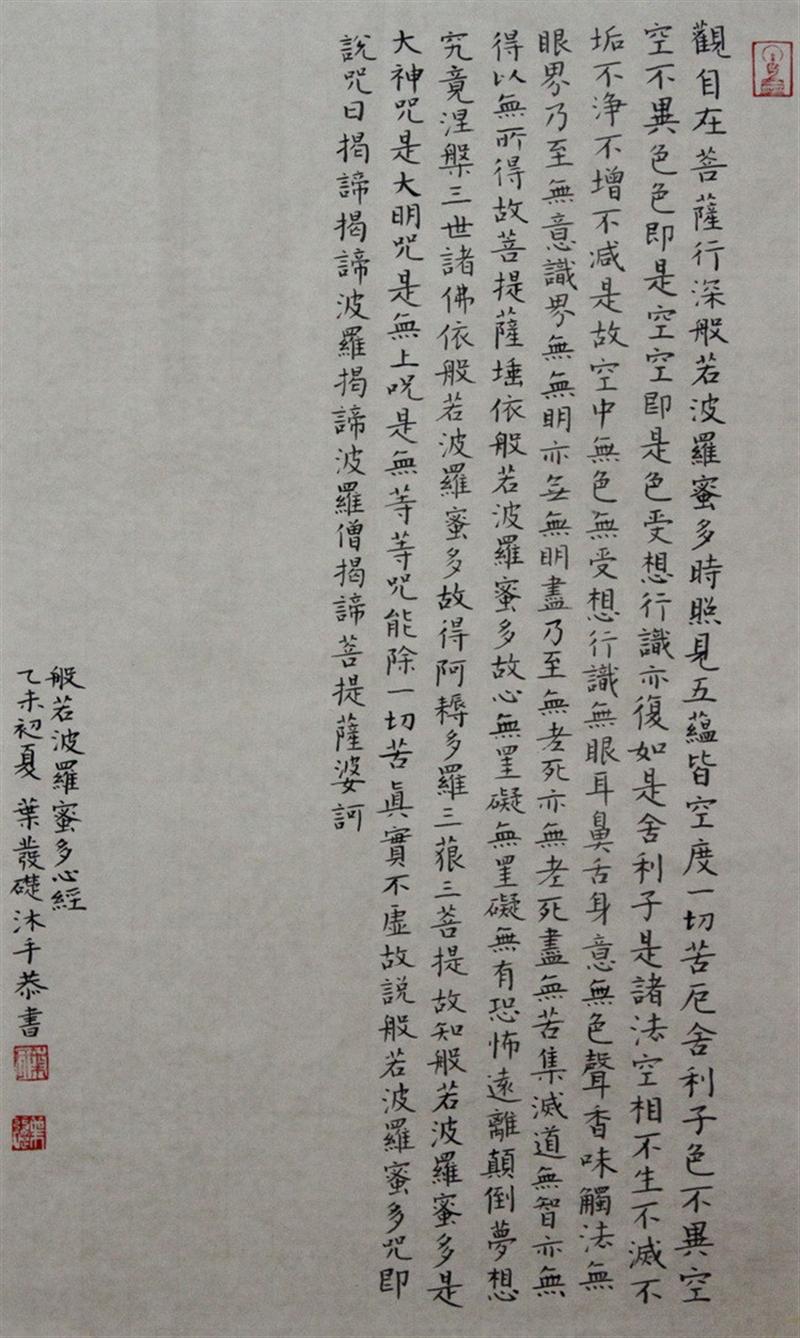 觀自在菩薩行深般若波羅蜜多時照見五蘊皆空度一切苦厄舍利子色不異空
空不異色色即是空空即是色受想行識亦復如是舍利子是諸法空相不生不滅不
垢不淨不增不減是故空中無色無受想行識無眼耳鼻舌身意無色聲香味觸法無
眼界乃至無意識界無無明亦無無明盡乃至無老死亦無老死盡無苦集滅道無智亦無
得以無所得故菩提薩埵依般若波羅蜜多故心無罣礙無罣礙無有恐怖遠離顛倒夢想
究竟涅槃三世諸佛依般若波羅蜜多故得阿耨多羅三藐三菩提故知般若波羅蜜多是
大神咒是大明咒是無上咒是無等等咒能除一切苦真實不虛故說般若波羅蜜多咒即
說咒曰揭諦揭諦波羅揭諦波羅僧揭諦菩提薩婆訶
般若波羅蜜多心經
乙未初夏葉發礎沐手恭書